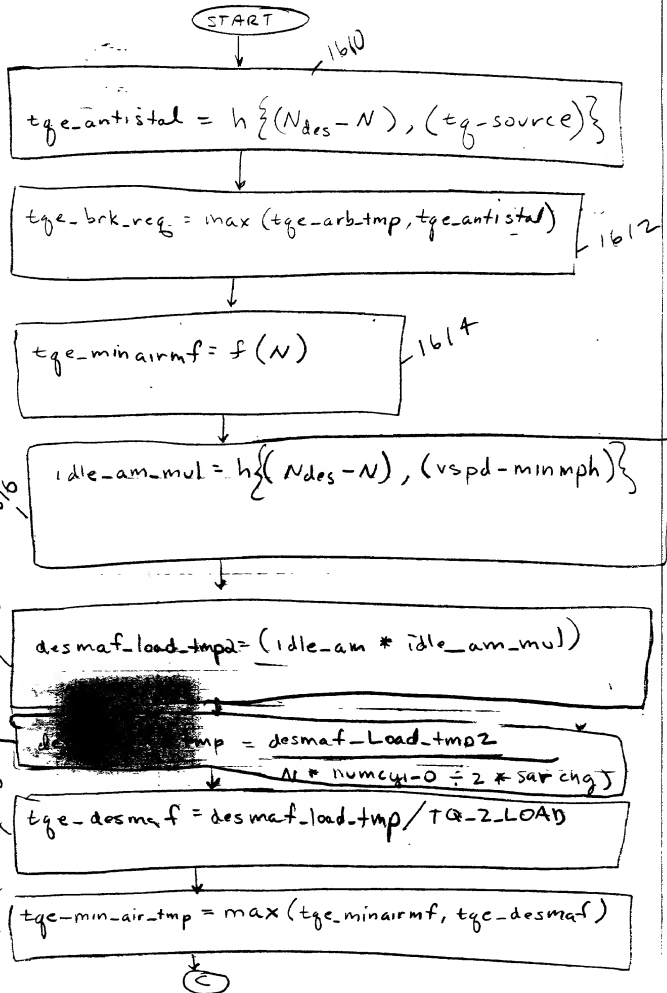 START
1610
tqe_antistal = h{(Ndes-N), (tq-source)}
tqe_brk_req = max (tqe_arb_tmp, tqe_antistal)
1612
tqe_minairmf = f(N)
1614
idle_am_mul = h{(Ndes-N), (vspd-minmph)}
desmaf_load_tmp2 = (idle_am * idle_am_mul)
tmp = desmaf_Load_tmp2
N * numcyl-0 ÷ 2 *
tqe_desmaf = desmaf_load_tmp/TQ_2_LOAD
tqe-min_air_tmp = max (tqe_minairmf, tqe_desmaf)
C